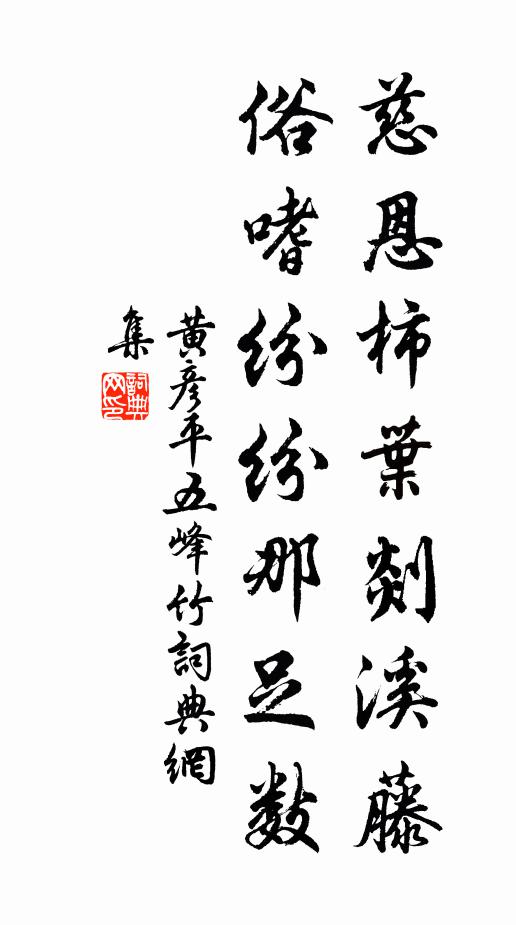 慈恩柿葉剡溪藤
俗嗜紛紛那足數
黃彥平五峰竹詞典網
集
詞典
网印